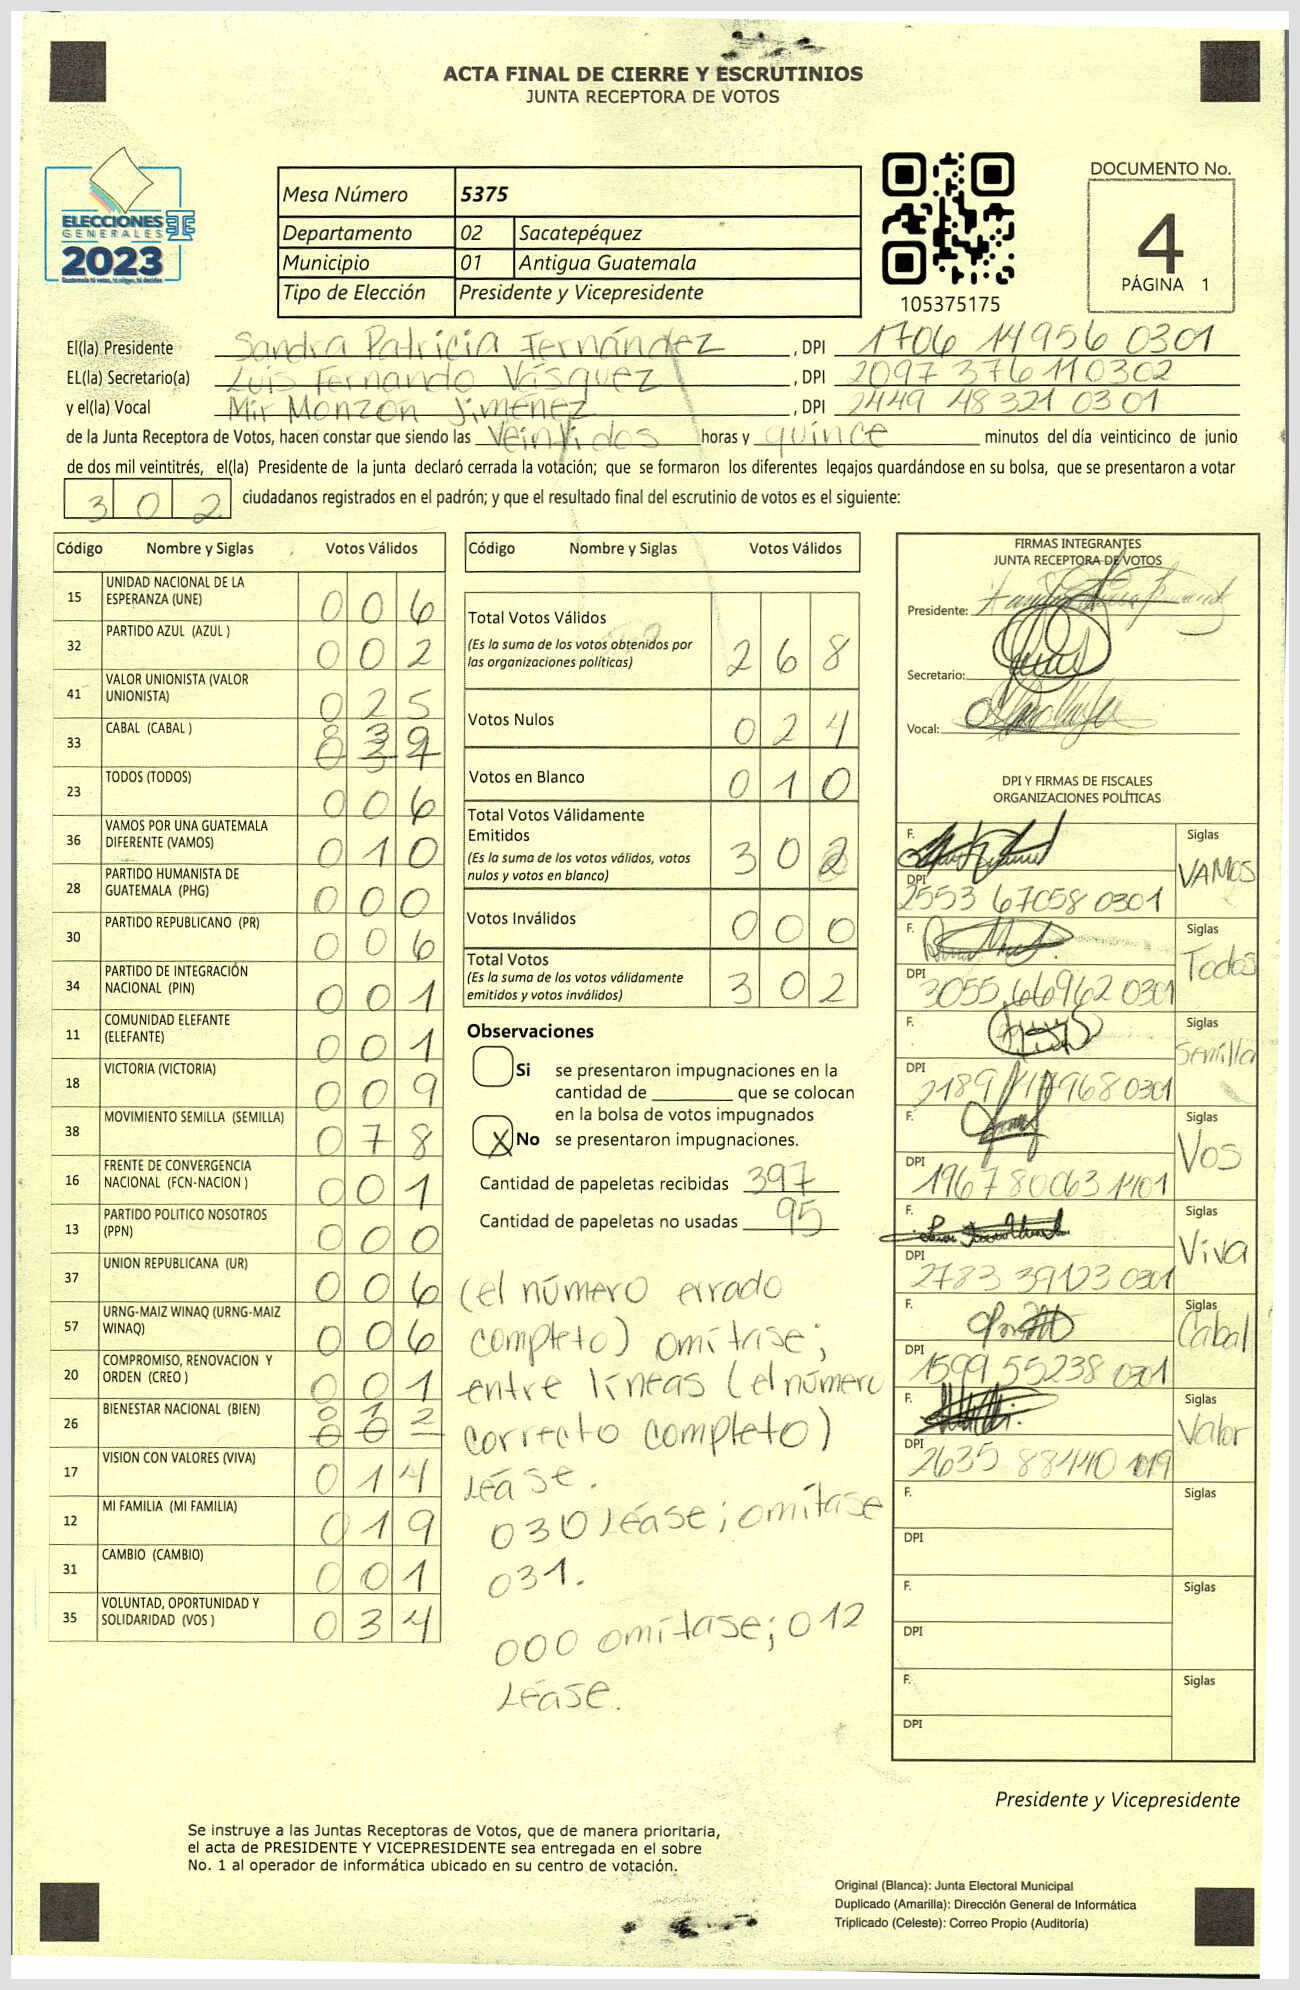 ACTA FINAL DE CIERRE Y ESCRUTINIOS
JUNTA RECEPTORA DE VOTOS
ELECCIONES
GENERALES
2023
Guatemala tú votas, tú eliges, tú decides
Mesa Número 5375
Departamento 02 Sacatepéquez
Municipio 01 Antigua Guatemala
Tipo de Elección Presidente y Vicepresidente
105375175
DOCUMENTO No.
4
PÁGINA 1
El(la) Presidente Sandra Patricia Fernández , DPI 1706 14956 0301
EL(la) Secretario(a) Luis Fernando Vásquez , DPI 2097 376110302
y el(la) Vocal Mir Monzon Jiménez , DPI 2449 48321 0301
de la Junta Receptora de Votos, hacen constar que siendo las veintidos horas y quince minutos del día veinticinco de junio
de dos mil veintitrés, el(la) Presidente de la junta declaró cerrada la votación; que se formaron los diferentes legajos quardándose en su bolsa, que se presentaron a votar
302 ciudadanos registrados en el padrón; y que el resultado final del escrutinio de votos es el siguiente:
Código Nombre y Siglas Votos Válidos
15 UNIDAD NACIONAL DE LA ESPERANZA (UNE) 006
32 PARTIDO AZUL (AZUL ) 002
41 VALOR UNIONISTA (VALOR UNIONISTA) 025
33 CABAL (CABAL )
23 TODOS (TODOS) 006
36 VAMOS POR UNA GUATEMALA DIFERENTE (VAMOS) 010
28 PARTIDO HUMANISTA DE GUATEMALA (PHG) 000
30 PARTIDO REPUBLICANO (PR) 006
34 PARTIDO DE INTEGRACIÓN NACIONAL (PIN) 001
11 COMUNIDAD ELEFANTE (ELEFANTE) 001
18 VICTORIA (VICTORIA) 009
38 MOVIMIENTO SEMILLA (SEMILLA) 078
16 FRENTE DE CONVERGENCIA NACIONAL (FCN-NACION ) 001
13 PARTIDO POLITICO NOSOTROS (PPN) 000
37 UNION REPUBLICANA (UR) 006
57 URNG-MAIZ WINAQ (URNG-MAIZ WINAQ) 006
20 COMPROMISO, RENOVACION Y ORDEN (CREO ) 001
26 BIENESTAR NACIONAL (BIEN)
17 VISION CON VALORES (VIVA) 014
12 MI FAMILIA (MI FAMILIA) 019
31 CAMBIO (CAMBIO) 001
35 VOLUNTAD, OPORTUNIDAD Y SOLIDARIDAD (VOS ) 034
Código Nombre y Siglas Votos Válidos
Total Votos Válidos 268
(Es la suma de los votos obtenidos por
las organizaciones políticas)
Votos Nulos 024
Votos en Blanco 010
Total Votos Válidamente
Emitidos 302
(Es la suma de los votos válidos, votos
nulos y votos en blanco)
Votos Inválidos 000
Total Votos 302
(Es la suma de los votos válidamente
emitidos y votos inválidos)
Observaciones
Si se presentaron impugnaciones en la
cantidad de ________ que se colocan
en la bolsa de votos impugnados
X No se presentaron impugnaciones.
Cantidad de papeletas recibidas 397
Cantidad de papeletas no usadas 95
(el número errado
completo) omítase;
entre líneas (el número
correcto completo)
léase.
030 léase; omítase
031.
000 omítase; 012
Léase.
FIRMAS INTEGRANTES
JUNTA RECEPTORA DE VOTOS
Presidente:
Secretario:
Vocal:
DPI Y FIRMAS DE FISCALES
ORGANIZACIONES POLÍTICAS
F. Siglas VAMOS
DPI 2553 67058 0301
F. Siglas Todos
DPI 3055 66962 0301
F. Siglas Semilla
DPI 2189 17968 0301
F. Siglas Vos
DPI 1967 80063 1401
F. Siglas Viva
DPI 2783 39123 0301
F. Siglas Cabal
DPI 1599 55238 0301
F. Siglas Valor
DPI 2635 88440
F. Siglas
DPI
F. Siglas
DPI
F. Siglas
DPI
Presidente y Vicepresidente
Se instruye a las Juntas Receptoras de Votos, que de manera prioritaria,
el acta de PRESIDENTE Y VICEPRESIDENTE sea entregada en el sobre
No. 1 al operador de informática ubicado en su centro de votación.
Original (Blanca): Junta Electoral Municipal
Duplicado (Amarilla): Dirección General de Informática
Triplicado (Celeste): Correo Propio (Auditoría)